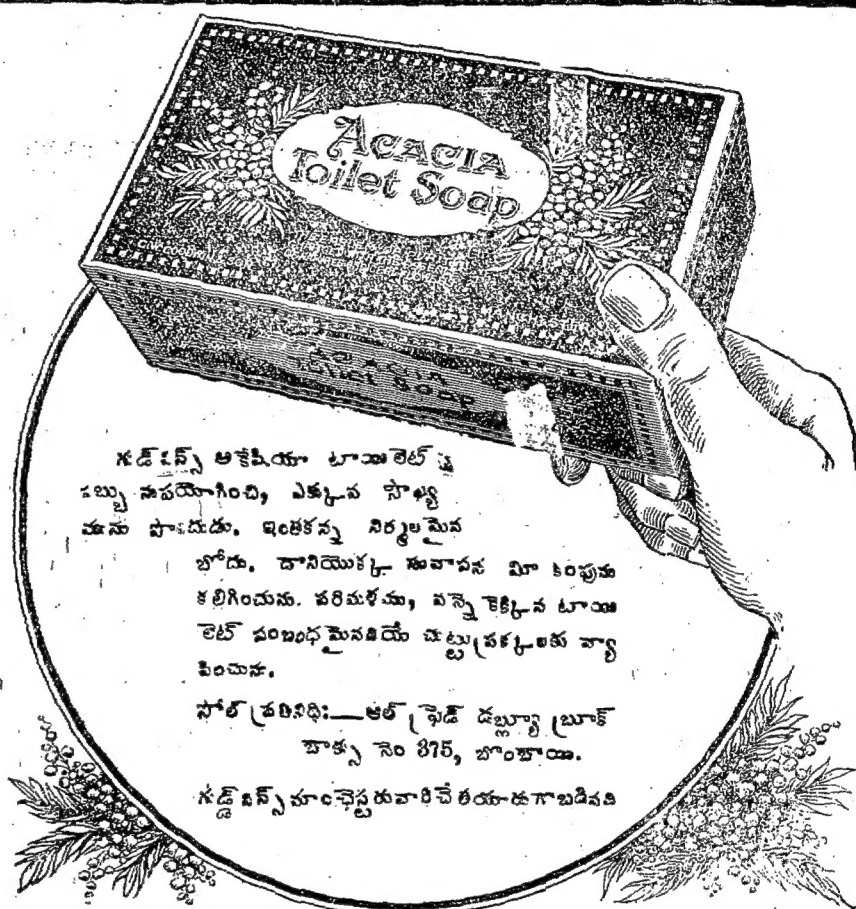 ACACIA
Toilet Soap
ACACIA
Toilet Soap
గడ్ విన్స్ అకేషియా టాయిలెట్
సబ్బు నుపయోగించి, ఎక్కువ సౌఖ్య
మును పొందుడు. ఇంతకన్న నిర్మలమైన
బోదు. దానియొక్క సువాసన మీ కింపును
కలిగించును. పరిమళము, వన్నె కెక్కిన టాయి
లెట్ సంబంధమైనదియే చుట్టుప్రక్కలకు వ్యా
పించును.
సోల్ ప్రతినిధిః—ఆల్ ఫ్రెడ్ డబ్ల్యూ బ్రూక్
బాక్సు నెం 375, బొంబాయి.
గడ్డ్ విన్స్ మాంచెస్టరువారిచే తయారుగాబడినది